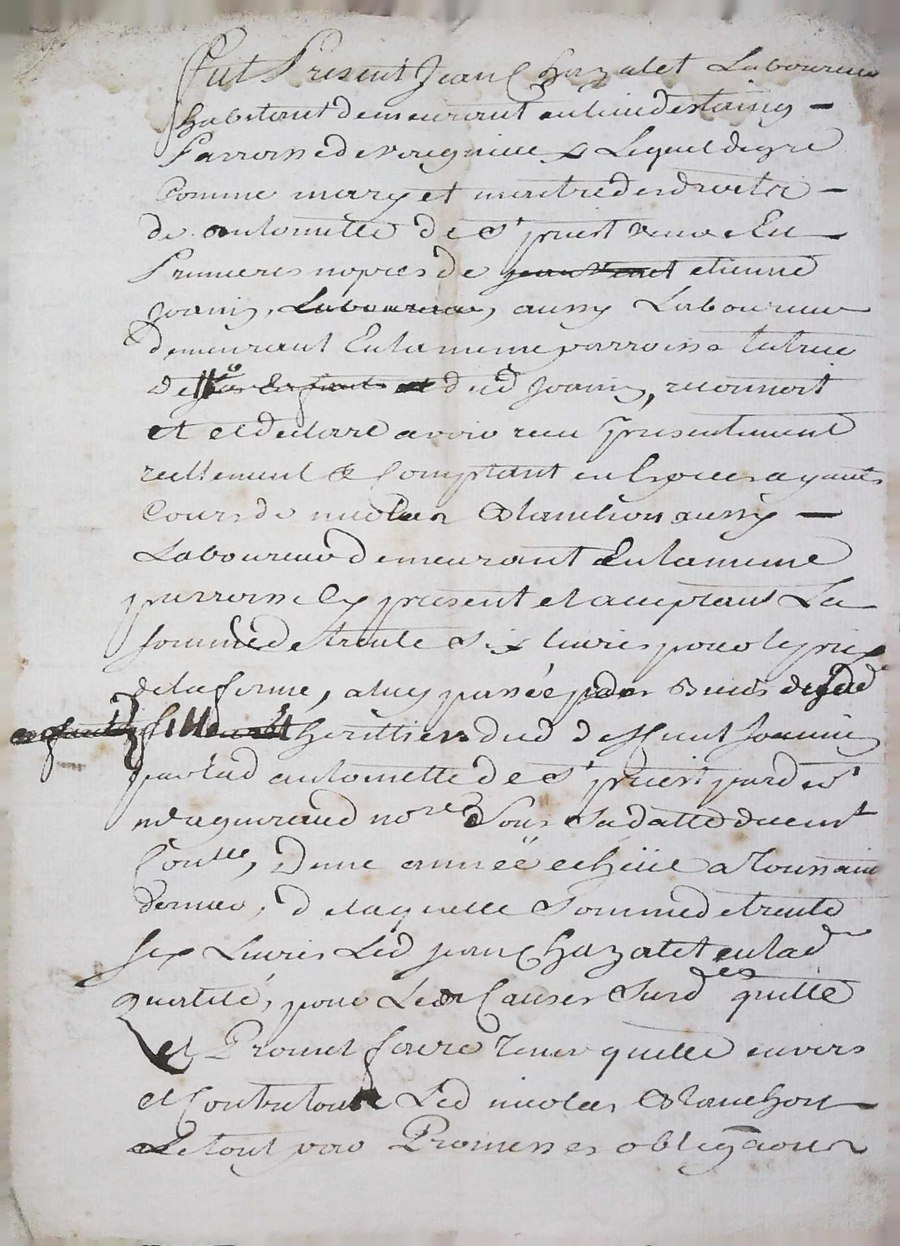 Fut Present Jean Chazalet Laboureur
habitant demeurant au lieu destaing
Parroisse de                    Lequel de gre
Comme mary et maitre des droits
de antoinette de St priest veuve En
Premieres nopces de etienne
Joanin, Laboureur, aussy Laboureur
demeurant En la meme parroisse tutrice
de dud Joanin, reconnoit
et et declare avoir receu presentement
reellement & Comptant en Especes ayants
Cours de nicolas Blanchon aussy
Laboureur demeurant En la meme
parroisse Cy present et acceptant La
somme de trente six livres pour le prix
de la ferme, a luy passée par
heritiers dud deffunt Joanin
par lad antoinette de St priest pard et
me         nore sous sa datte deuemt
Conllé, d'une année echüe a Toussain
dernier, de laquelle Somme de trente
six Livres Led jean Chazalet en lad
qualité, pour Les Causes Surdes quitte
et Promet faire Tenir quitte envers
et Contre tous Led nicolas Blanchon
Le tout par Promesses obligaons